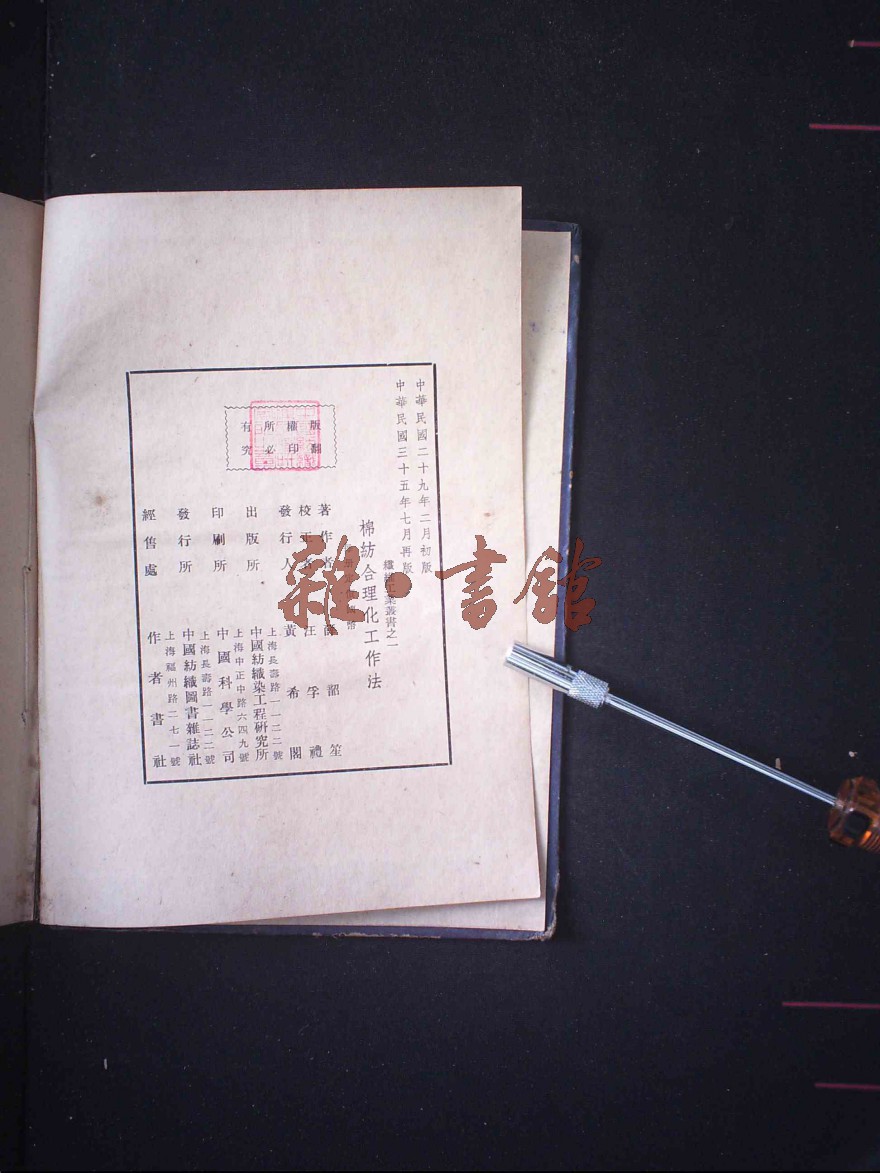 中華民國二十九年二月初版
中華民國三十五年七月再版
纖維工業叢書之一
棉紡合理化工作法
著作者 韶笙
校正者 汪孚禮
發行人 黃希閣
出版所 上海長壽路一一二二號
中國紡織染工程研究所
印刷所 上海中正中路六四九號
中國科學公司
發行所 上海長壽路一一二二號
中國紡織圖書雜誌社
經售處 上海福州路二七一號
作者書社
版權所有
翻印必究
雜·書館